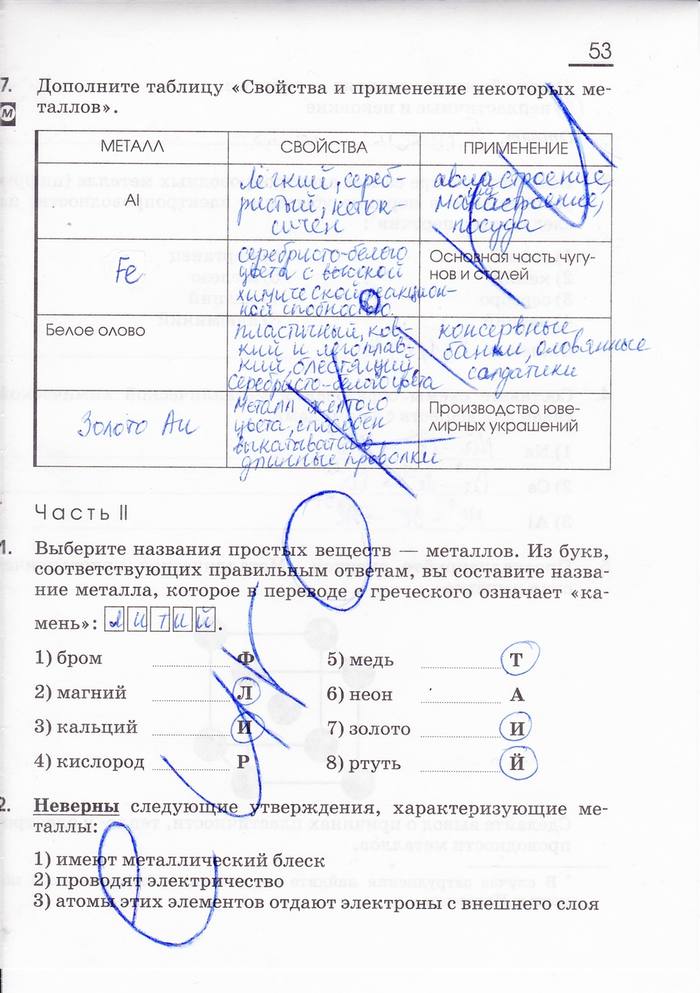 53
7. Дополните таблицу «Свойства и применение некоторых ме-
М
таллов».
МЕТАЛЛ СВОЙСТВА ПРИМЕНЕНИЕ
Al
лёгкий, сереб-
ристый, неток-
сичен
авиастроение,
машиностроение,
посуда
Fe
серебристо-белого
цвета с высокой
химической реакцион-
ной способностью.
Основная часть чугу-
нов и сталей
Белое олово
пластичный, ков-
кий и легоплав-
кий, блестящий,
серебристо-белого цвета
консервные
банки, оловянные
солдатики
Золото Au
металл жёлтого
цвета, способен
выкатыватся в
длинные проволки
Производство юве-
лирных украшений
Часть II
1. Выберите названия простых веществ — металлов. Из букв,
соответствующих правильным ответам, вы составите назва-
ние металла, которое в переводе с греческого означает «ка-
мень»: Л И Т И Й .
1) бром Ф 5) медь Т
2) магний Л 6) неон А
3) кальций И 7) золото И
4) кислород Р 8) ртуть Й
2. Неверны следующие утверждения, характеризующие ме-
таллы:
1) имеют металлический блеск
2) проводят электричество
3) атомы этих элементов отдают электроны с внешнего слоя